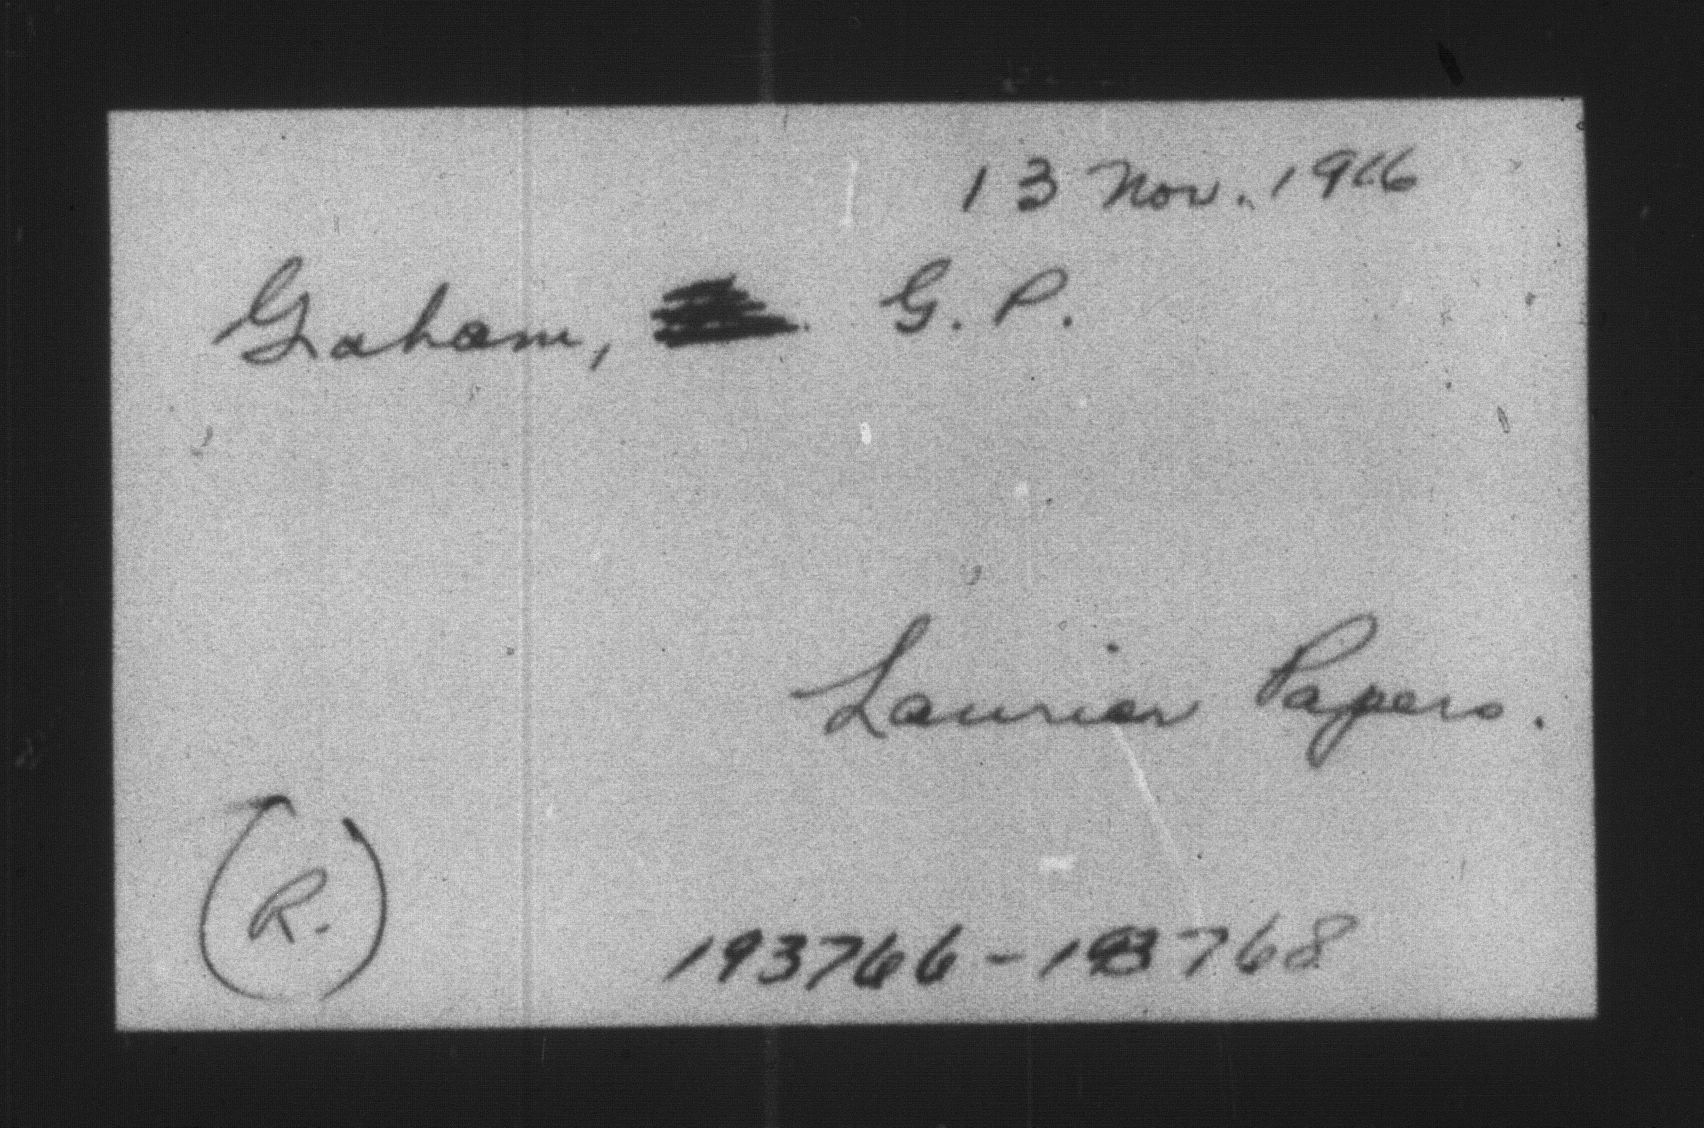 13 Nov. 1916
Graham, G. P.
Laurier Papers.
(R.)
193766-193768